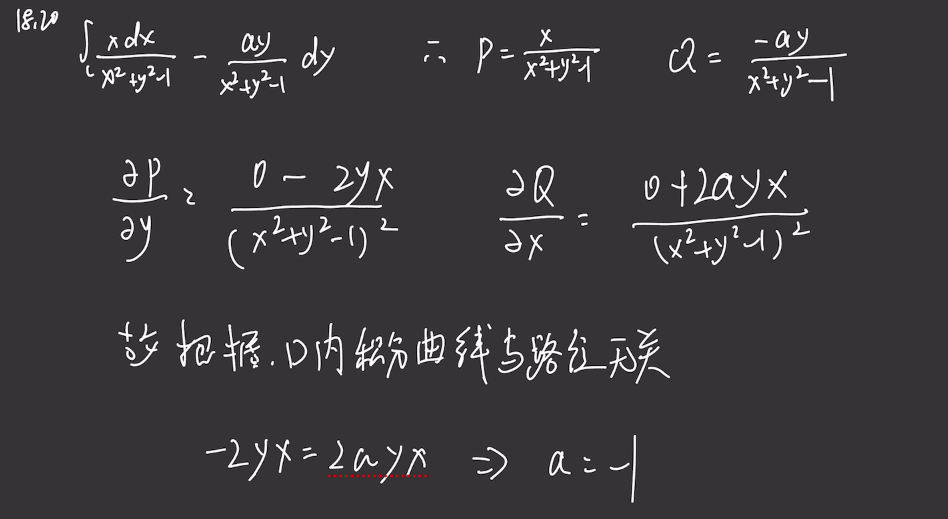 18.20
∫_L xdx/(x²+y²-1) - ay/(x²+y²-1) dy ∴ P = x/(x²+y²-1) Q = -ay/(x²+y²-1)
∂P/∂y = (0-2yx)/(x²+y²-1)² ∂Q/∂x = (0+2ayx)/(x²+y²-1)²
D内积分曲线与路径无关
-2yx = 2ayx ⇒ a = -1